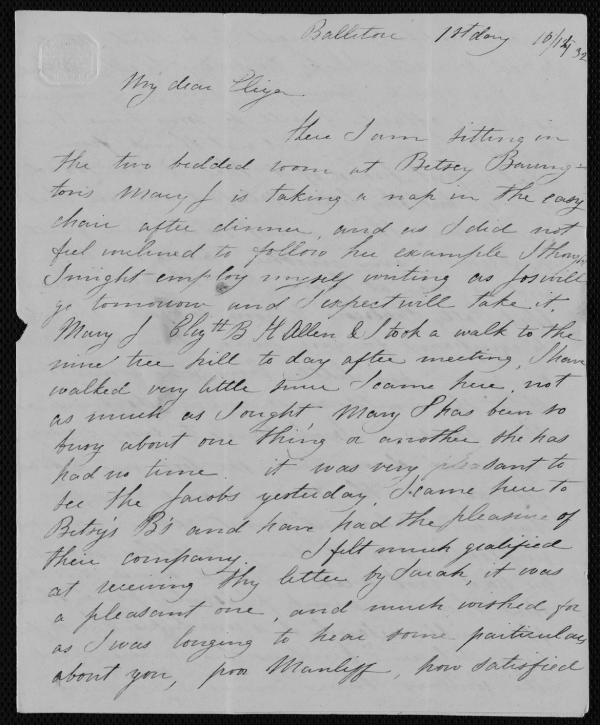 Ballitore 1st day 10/14/32
My dear Eliza
Here I am sitting in
the two bedded room at Betsey Barring=
tons Mary J is taking a nap in the easy
chair after dinner, and as I did not
feel inclined to follow her example I thought
I might employ myself writing as Jos will
go tomorrow and I expect will take it.
Mary J Elizth B H Allen & I took a walk to the
nine tree hill to day after meeting, I have
walked very little since I came here, not
as much as I ought Mary J has been so
busy about one thing or another she has
had no time. it was very pleasant to
see the Jacobs yesterday, I came here to
Betsy's B's and have had the pleasure of
their company. I felt much gratified
at receiving thy letter by Sarah, it was
a pleasant one, and much wished for
as I was longing to hear some particulars
about you, poor Manliff, how satisfied